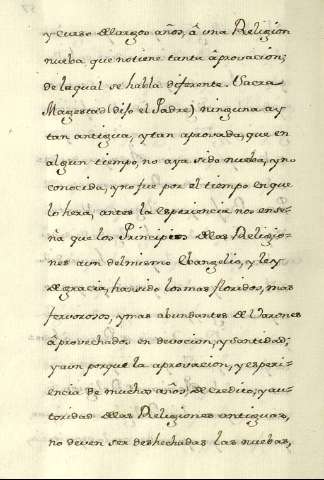 y curso de largos años, â una Religion
nueba que no tiene tanta âprovacion;
de la qual se habla diferente. Sacra
Magestad (dijo el Padre) ninguna ay
tan antigua, y tan aprovada, que en
algun tiempo, no aya sido nueba, y no
conocida, y no fue por el tiempo en que
lo hera, antes la esperiencia nos ense-
ña que los Principios de las Religio-
nes aun del mismo Ebangelio, y ley
de gracia, han sido los mas floridos, mas
fervorosos, y mas abundantes de Varones
âprovechados en devocion, y Santidad;
y aun porque la aprovacion, y esperi-
encia de muchos años, de credito, y au-
toridad a las Religiones antiguas,
no deven ser deshechadas las nuebas,